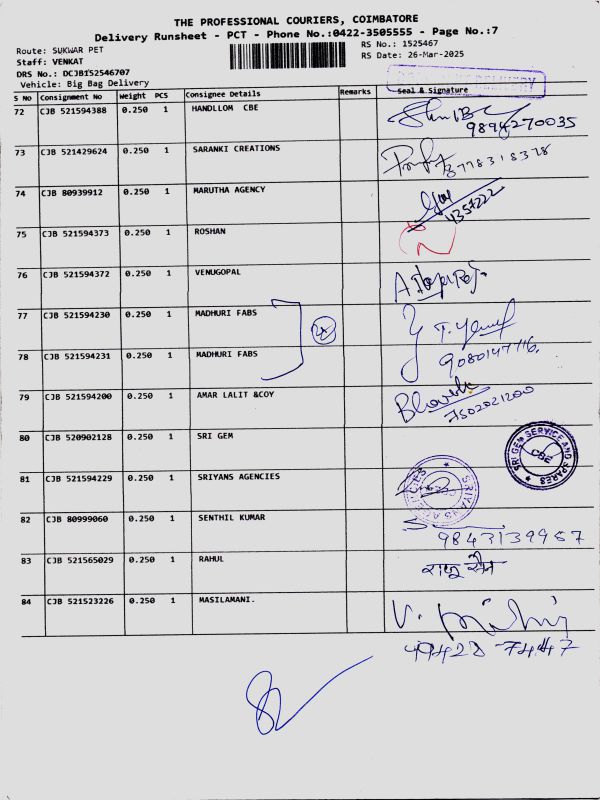 THE PROFESSIONAL COURIERS, COIMBATORE
Delivery Runsheet - PCT - Phone No.:0422-3505555 - Page No.:7
Route: SUKWAR PET
RS No.: 1525467
Staff: VENKAT
RS Date: 26-Mar-2025
DRS No.: DCJB152546707
Vehicle: Big Bag Delivery
S No Consignment No Weight PCS Consignee Details Remarks Seal & Signature
72 CJB 521594388 0.250 1 HANDLLOM CBE
9894270035
73 CJB 521429624 0.250 1 SARANKI CREATIONS
8778318378
74 CJB 80939912 0.250 1 MARUTHA AGENCY
4357222
75 CJB 521594373 0.250 1 ROSHAN
76 CJB 521594372 0.250 1 VENUGOPAL
77 CJB 521594230 0.250 1 MADHURI FABS
78 CJB 521594231 0.250 1 MADHURI FABS
9080147116.
79 CJB 521594200 0.250 1 AMAR LALIT &COY
7502021200
80 CJB 520902128 0.250 1 SRI GEM
SRI GEM SERVICE AND SPARES
CBE
81 CJB 521594229 0.250 1 SRIYANS AGENCIES
SRIYANS AGENCIES
82 CJB 80999060 0.250 1 SENTHIL KUMAR
9843139967
83 CJB 521565029 0.250 1 RAHUL
84 CJB 521523226 0.250 1 MASILAMANI.
99428-7447